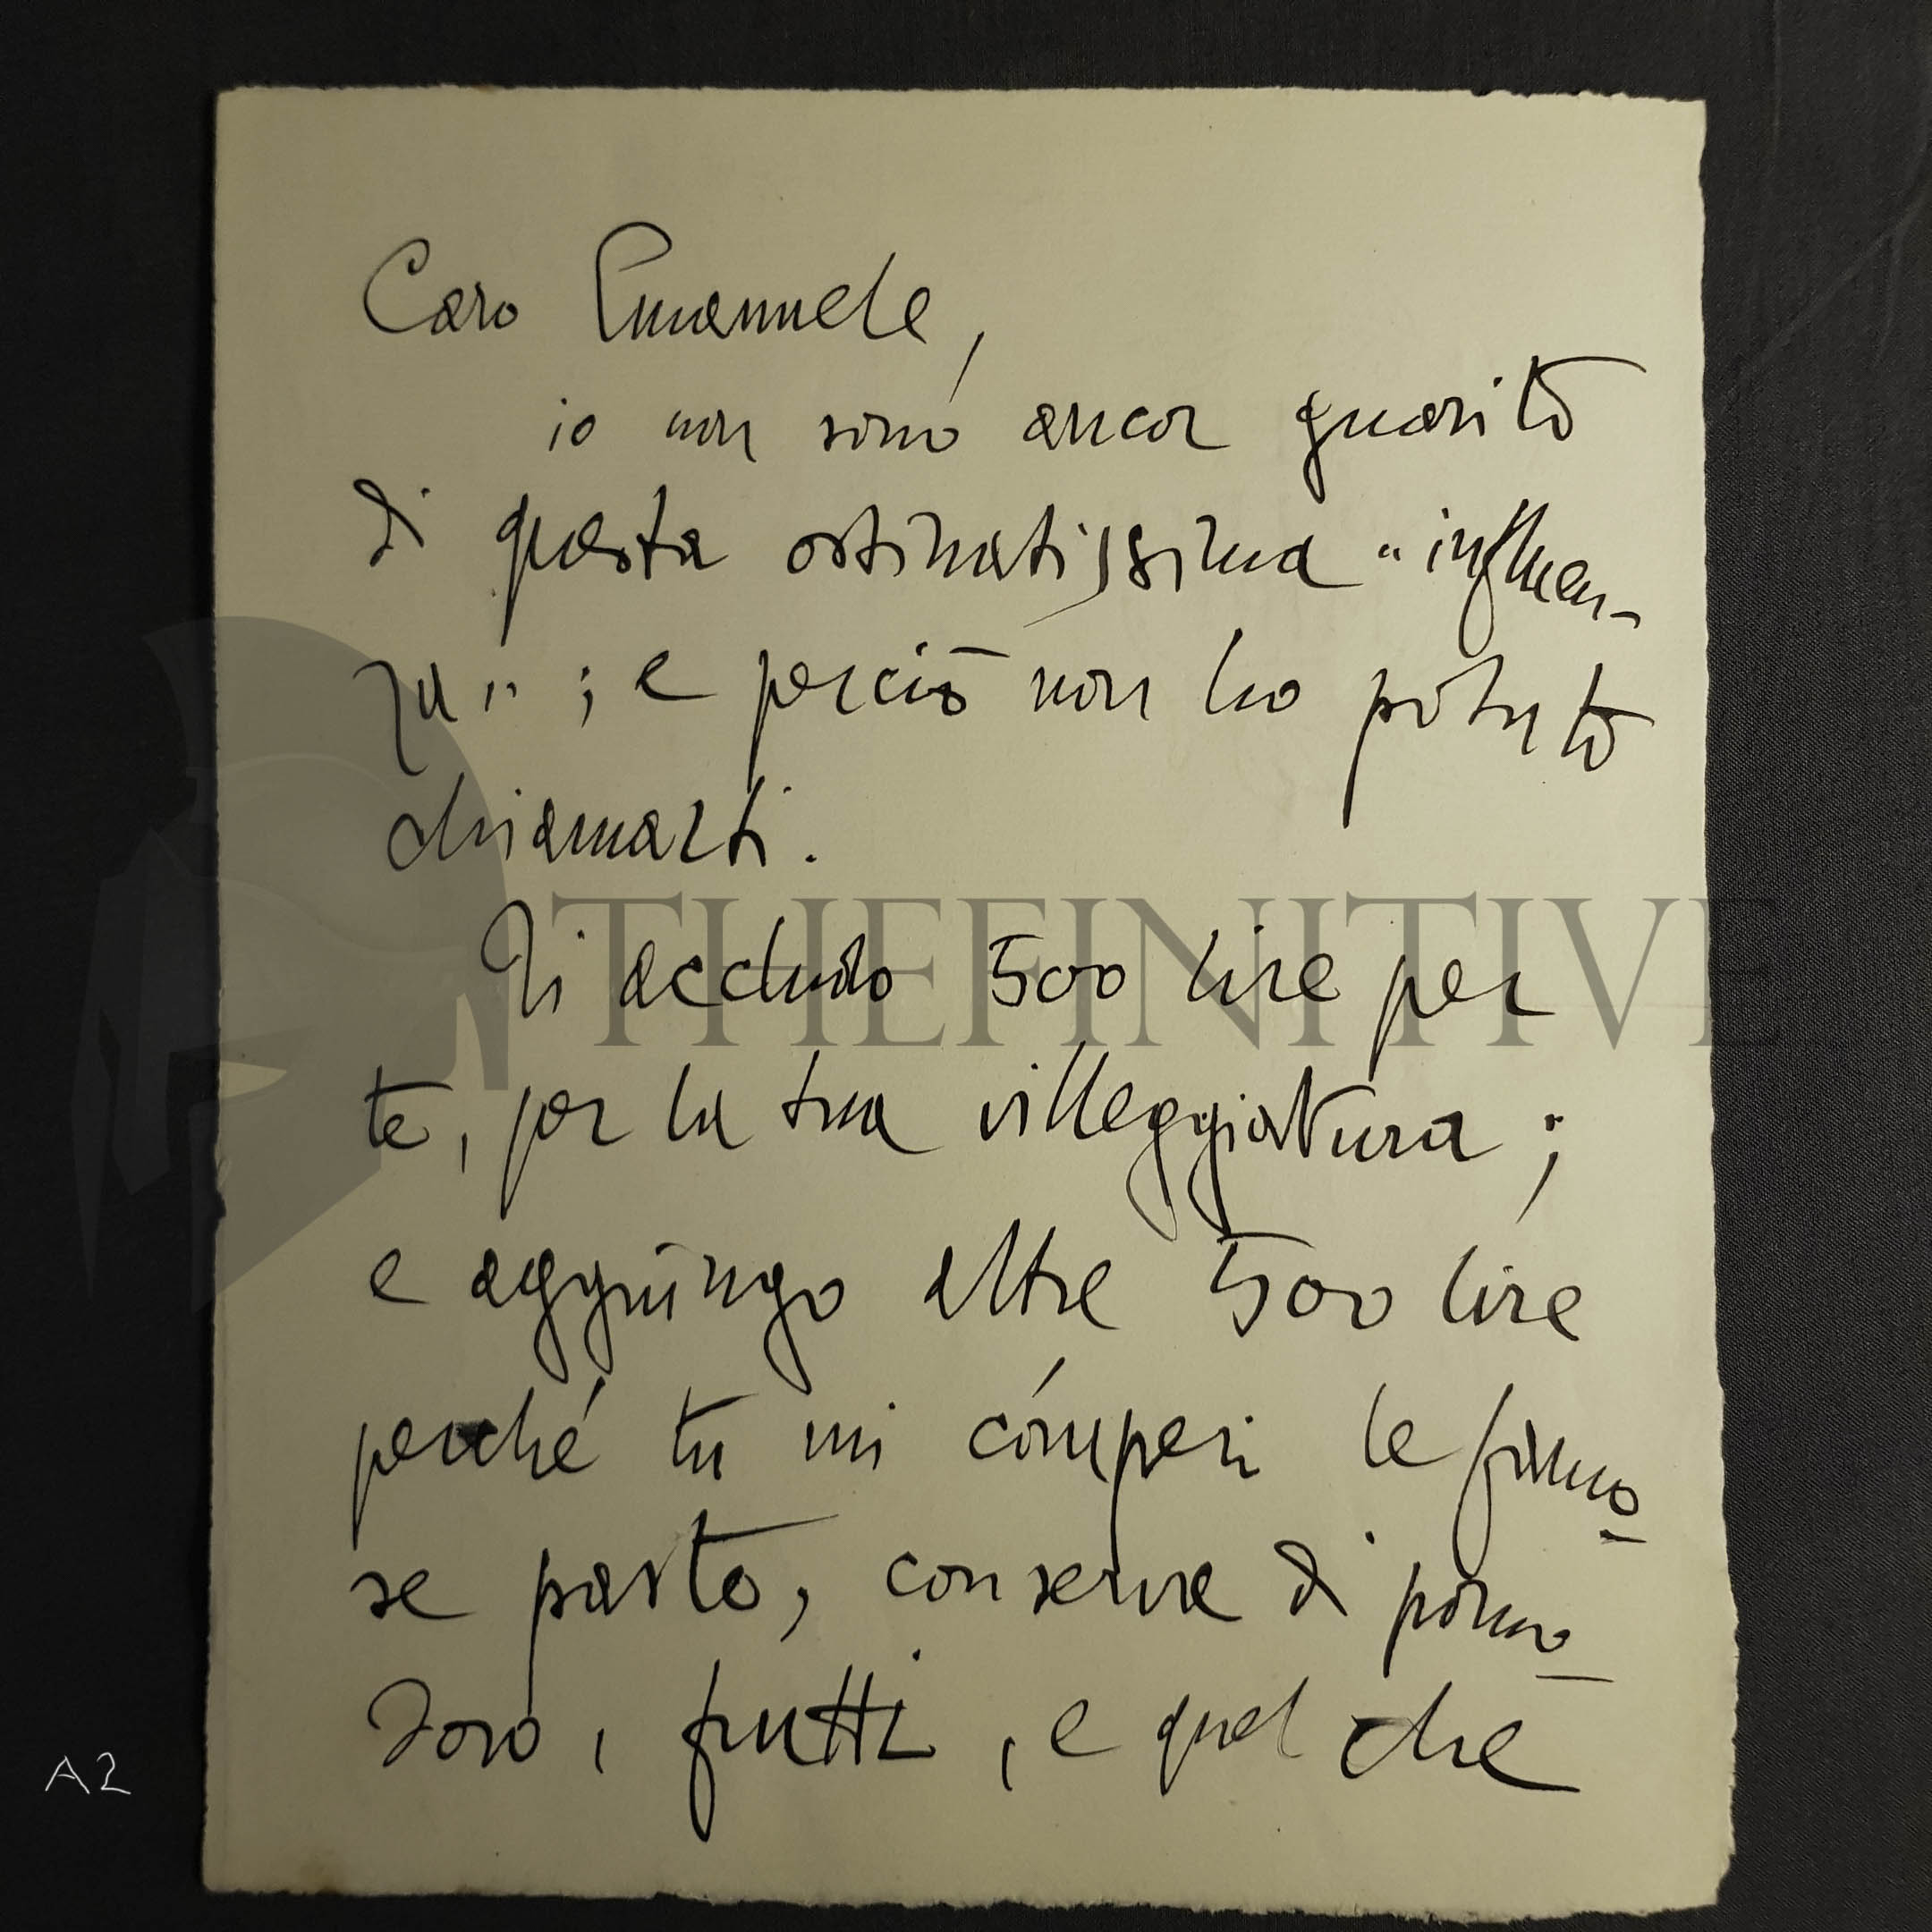 Caro Emanuele,
io non sono ancor guarito
di questa ostinatissima "influen-
za"; e perciò non ho potuto
chiamarti.
Ti accludo 500 lire per
THEFINITIVE
te, per la tua villeggiatura;
e aggiungo altre 500 lire
perché tu mi cómperi le famo-
se paste, conserve di pomo-
doro, frutti, e quel che
A2